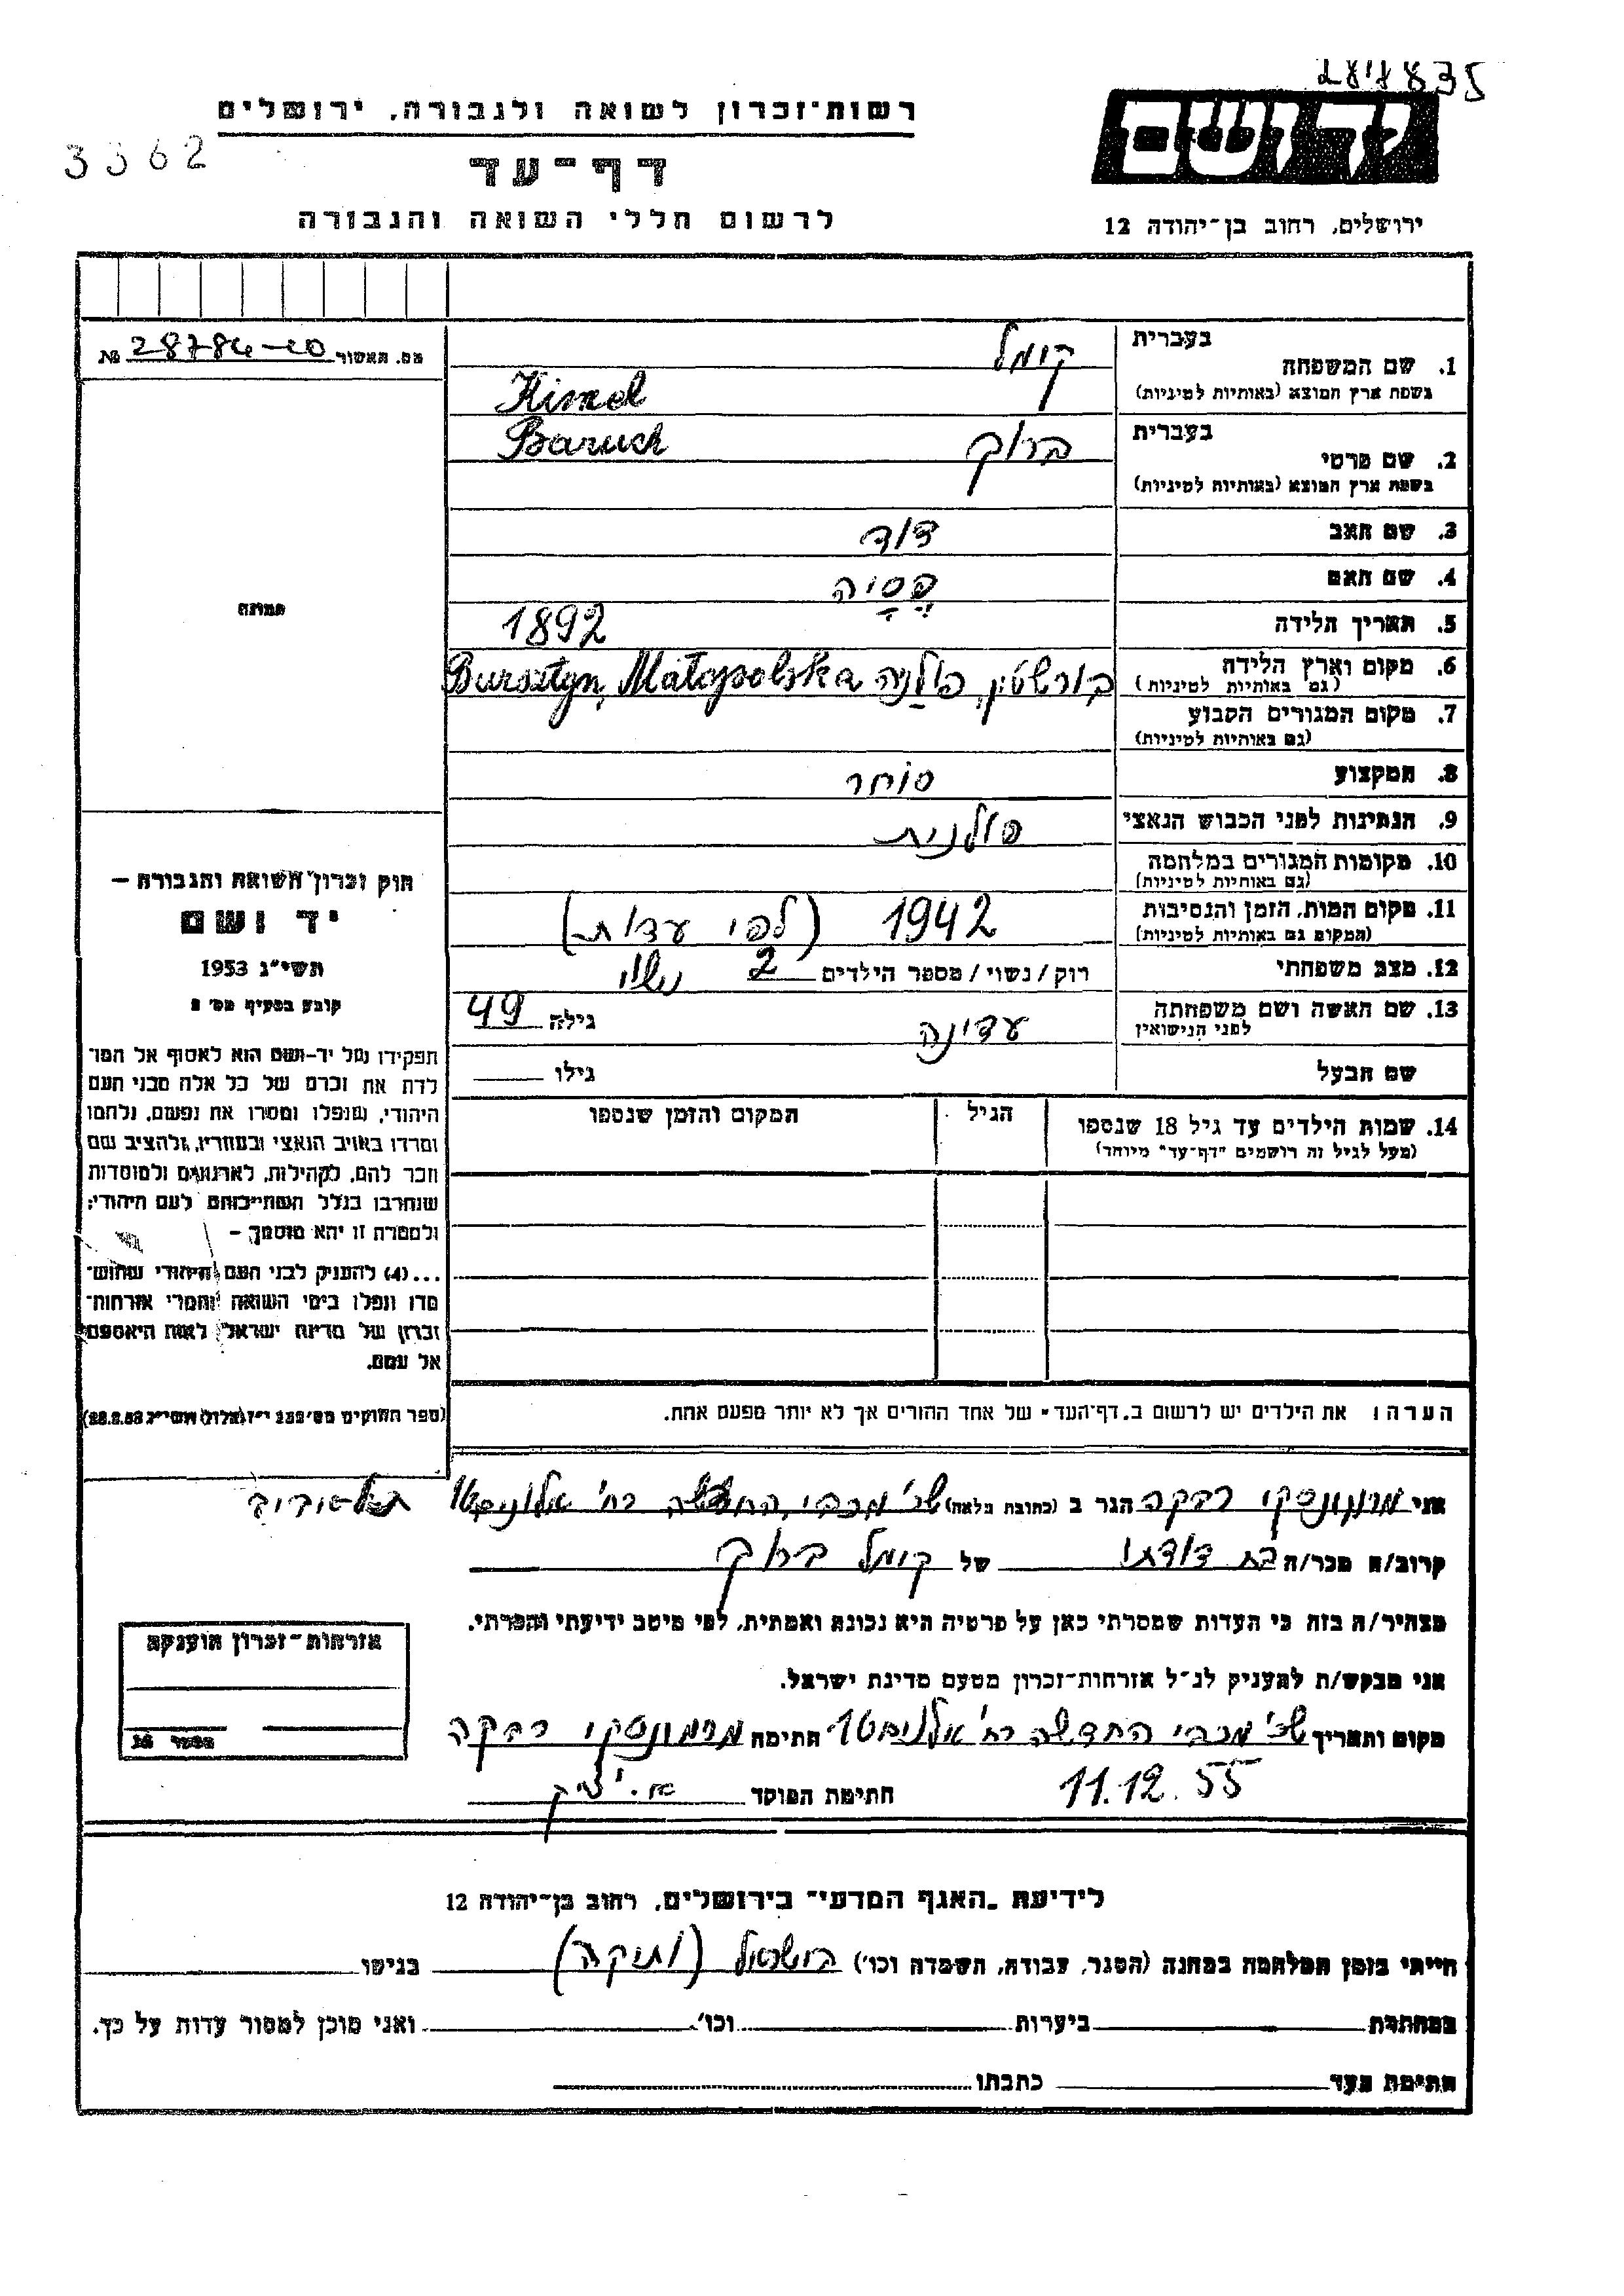 רשות־זכרון לשואה ולגבורה, ירושלים
3362
דף־עד
לרשום חללי השואה והגבורה
יד ושם
ירושלים, רחוב בן־יהודה 12
מס. האשור № 28784-20
בעברית קימל
1. שם המשפחה
בשפת ארץ המוצא (באותיות לטיניות) Kimel
בעברית ברוך
2. שם פרטי
בשפת ארץ המוצא (באותיות לטיניות) Baruch
3. שם האב דוד
4. שם האם פֶּסְיָה
5. תאריך הלידה 1892
6. מקום וארץ הלידה בורשטין, פולניה Bursztyn, Małopolska
(גם באותיות לטיניות)
7. מקום המגורים הקבוע
(גם באותיות לטיניות)
8. המקצוע סוחר
9. הנתינות לפני הכבוש הנאצי פולנית
10. מקומות המגורים במלחמה
(גם באותיות לטיניות)
11. מקום המות, הזמן והנסיבות 1942 (לפי עדות)
(המקום גם באותיות לטיניות)
12. מצב משפחתי רוק/נשוי/מספר הילדים 2 נשוי
13. שם האשה ושם משפחתה עדינה גילה 49
לפני הנישואין
שם הבעל גילו
14. שמות הילדים עד גיל 18 שנספו הגיל המקום והזמן שנספו
(מעל לגיל זה רושמים "דף־עד" מיוחד)
הערה: את הילדים יש לרשום ב"דף־העד" של אחד ההורים אך לא יותר מפעם אחת.
תמונה
חוק זכרון השואה והגבורה –
יד ושם
תשי"ג 1953
קובע בסעיף מס' 2
תפקידו של יד־ושם הוא לאסוף אל המו־
לדת את זכרם של כל אלה מבני העם
היהודי, שנפלו ומסרו את נפשם, נלחמו
ומרדו באויב הנאצי ובעוזריו, ולהציב שם
וזכר להם, לקהילות, לארגונים ולמוסדות
שנחרבו בגלל השתייכותם לעם היהודי;
ולמטרה זו יהא מוסמך –
...(4) להעניק לבני העם היהודי שהוש־
מדו ונפלו בימי השואה והמרי אזרחות־
זכרון של מדינת ישראל לאות היאספם
אל עמם.
(ספר החוקים מס' 132 י"ז אלול תשי"ג 28.8.53)
אני מרמונסקי רבקה הגר ב (כתובת מלאה) שכ' מכבי החדשה רח' אלוניס 16 תל-אביב
קרוב/ה מכר/ה בת דודתו של קימל ברוך
מצהיר/ה בזה כי העדות שמסרתי כאן על פרטיה היא נכונה ואמתית, לפי מיטב ידיעתי והכרתי.
אני מבקש/ת להעניק לנ"ל אזרחות־זכרון מטעם מדינת ישראל.
מקום ותאריך שכ' מכבי החדשה רח' אלוניס 16 חתימה מרמונסקי רבקה
11.12.55 חתימת הפוקד
אזרחות־זכרון הוענקה
לידיעת "האגף המדעי" בירושלים, רחוב בן־יהודה 12
חייתי בזמן המלחמה במחנה (הסגר, עבודה, השמדה וכו') בישראל (ותיקה) בגיטו
במחתרת ביערות וכו' ואני מוכן למסור עדות על כך.
חתימת העד כתבתו